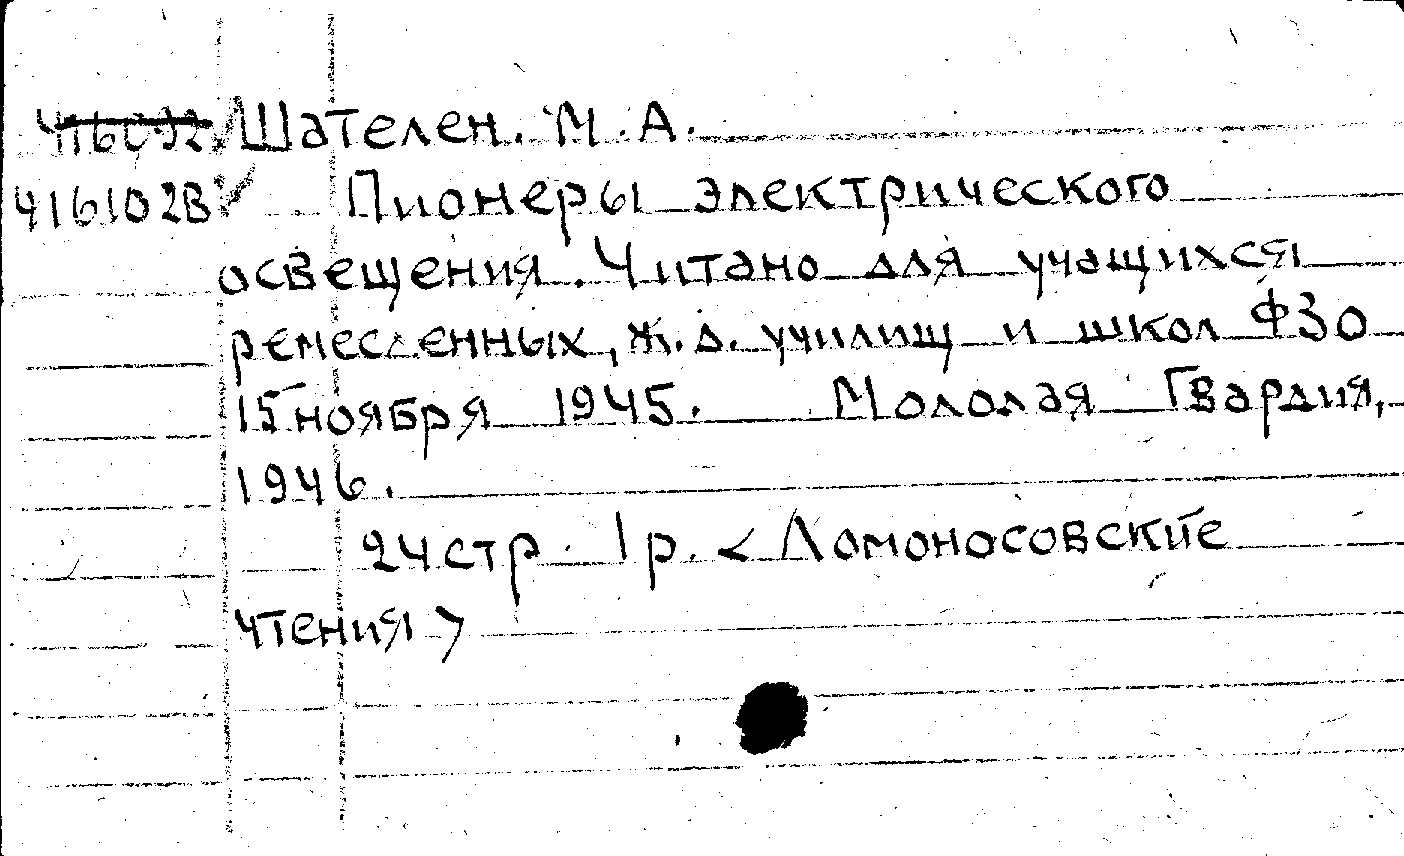 Шателен. М. А.
416102В Пионеры электрического
освещения. Читано для учащихся
ремесленных, ж.д. училищ и школ ФЗО
15 ноября 1945. Молодая Гвардия,
1946.
24 стр. 1 р. < Ломоносовские
чтения >